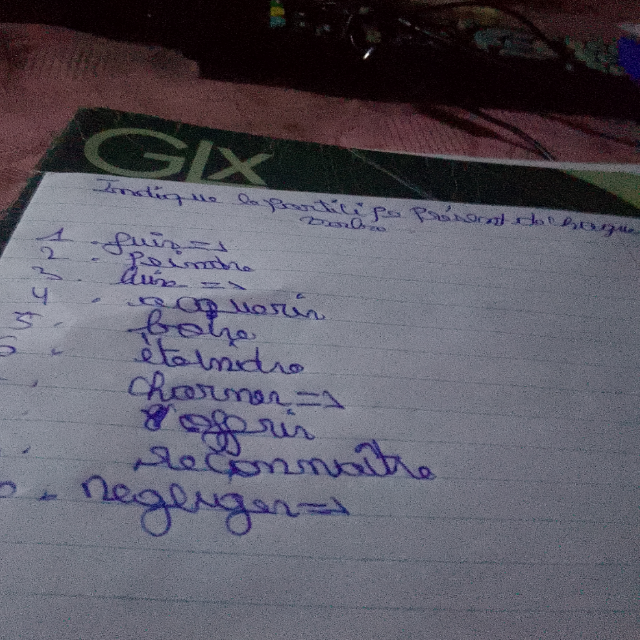 GIx
Indique le participe présent de chaque
verbe
1 - fuir =>
2 - Peindre
3 - lire =>
4 - acquerir
5 - boire
6 - éteindre
charmer =>
offrir
reconnaître
negliger =>